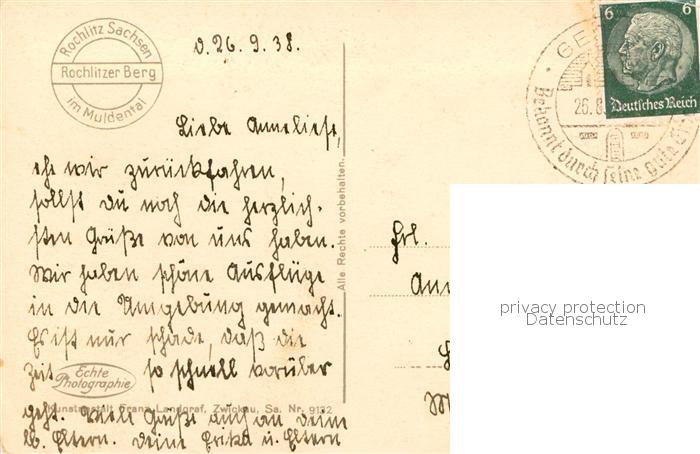 Rochlitz Sachsen
Rochlitzer Berg
im Muldental
d. 26. 9. 38.
Liebe Anneliese,
ehe wir zurückfahren,
sollst du noch die herzlich-
sten Grüße von uns haben.
Wir haben schöne Ausflüge
in die Umgebung gemacht.
Es ist nur schade, daß die
Zeit so schnell vorüber
geht. Viele Grüße auch an deine
lb. Eltern. Deine Erika u. Eltern
Echte
Photographie
Kunstanstalt Franz Landgraf, Zwickau, Sa. Nr. 9132
Alle Rechte vorbehalten.
6 6
Deutsches Reich
GE
26.8
Bekannt durch seine gute
Frl.
Ann
privacy protection
Datenschutz